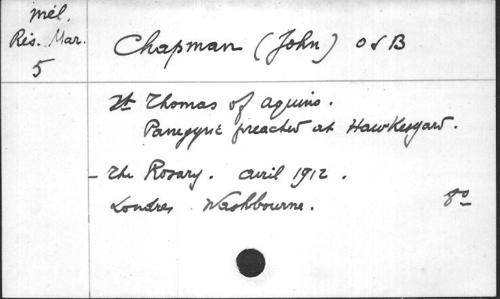 Mél.
Rés. Mar.
5
Chapman (John) OSB
St Thomas of Aquino.
Panegyric preached at Hawkesyard.
– The Rosary. avril 1912.
Londres Washbourne. 8º